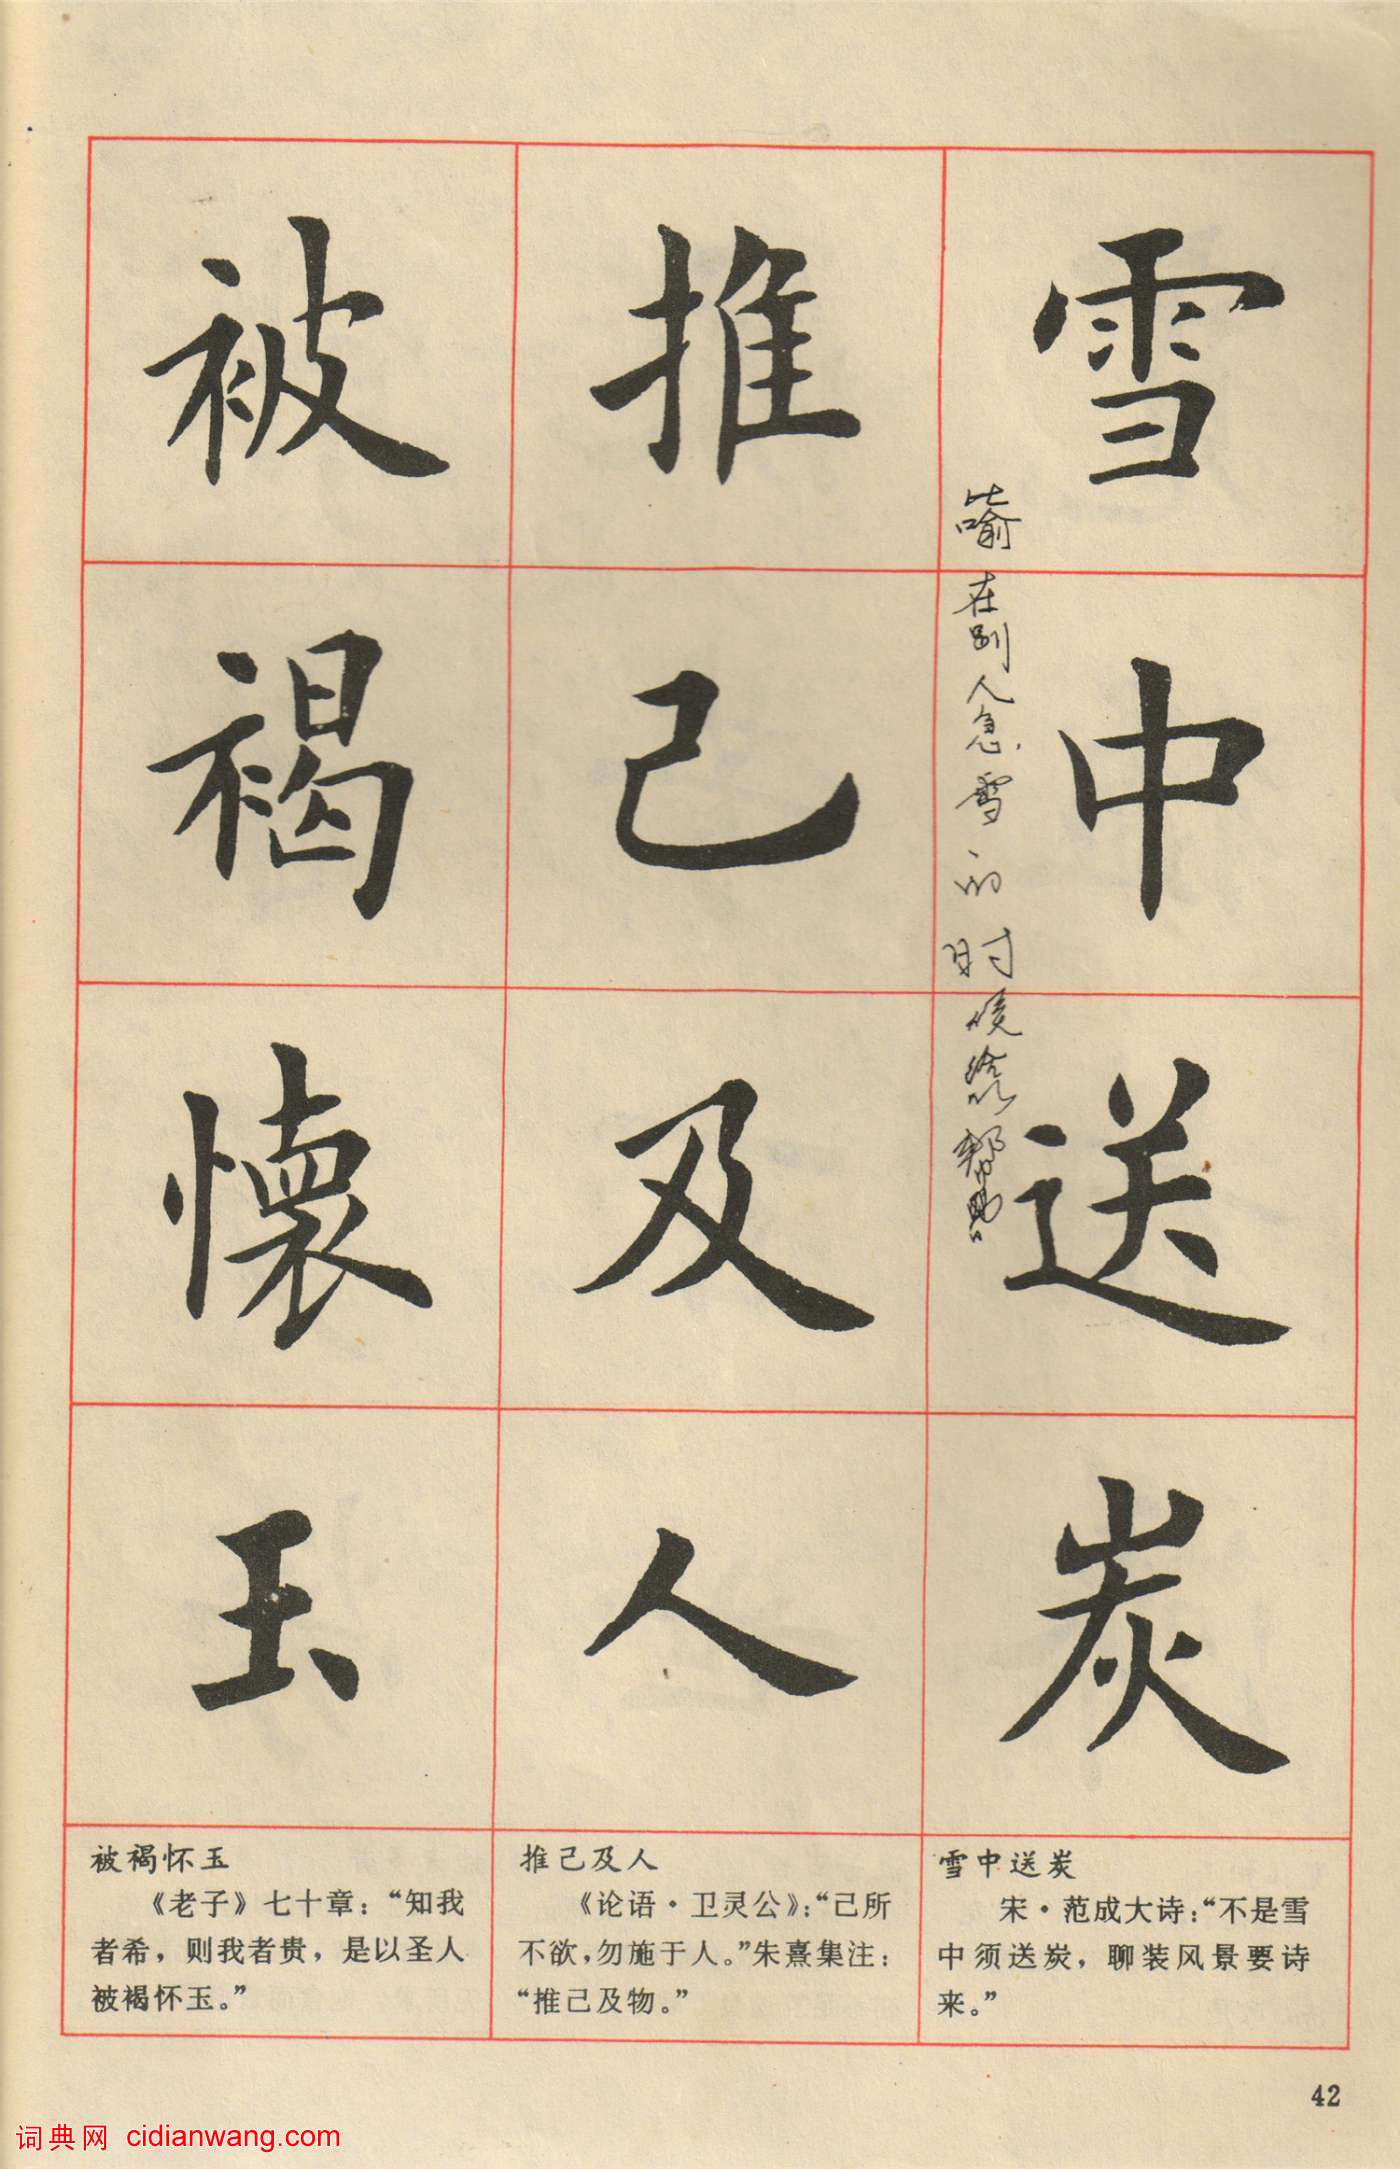 雪中送炭
比喻在别人急需的时候给以帮助
推己及人
被褐懷玉
雪中送炭
宋·范成大诗：“不是雪
中须送炭，聊装风景要诗
来。”
推己及人
《论语·卫灵公》：“己所
不欲，勿施于人。”朱熹集注：
“推己及物。”
被褐怀玉
《老子》七十章：“知我
者希，则我者贵，是以圣人
被褐怀玉。”
42
词典网 cidianwang.com